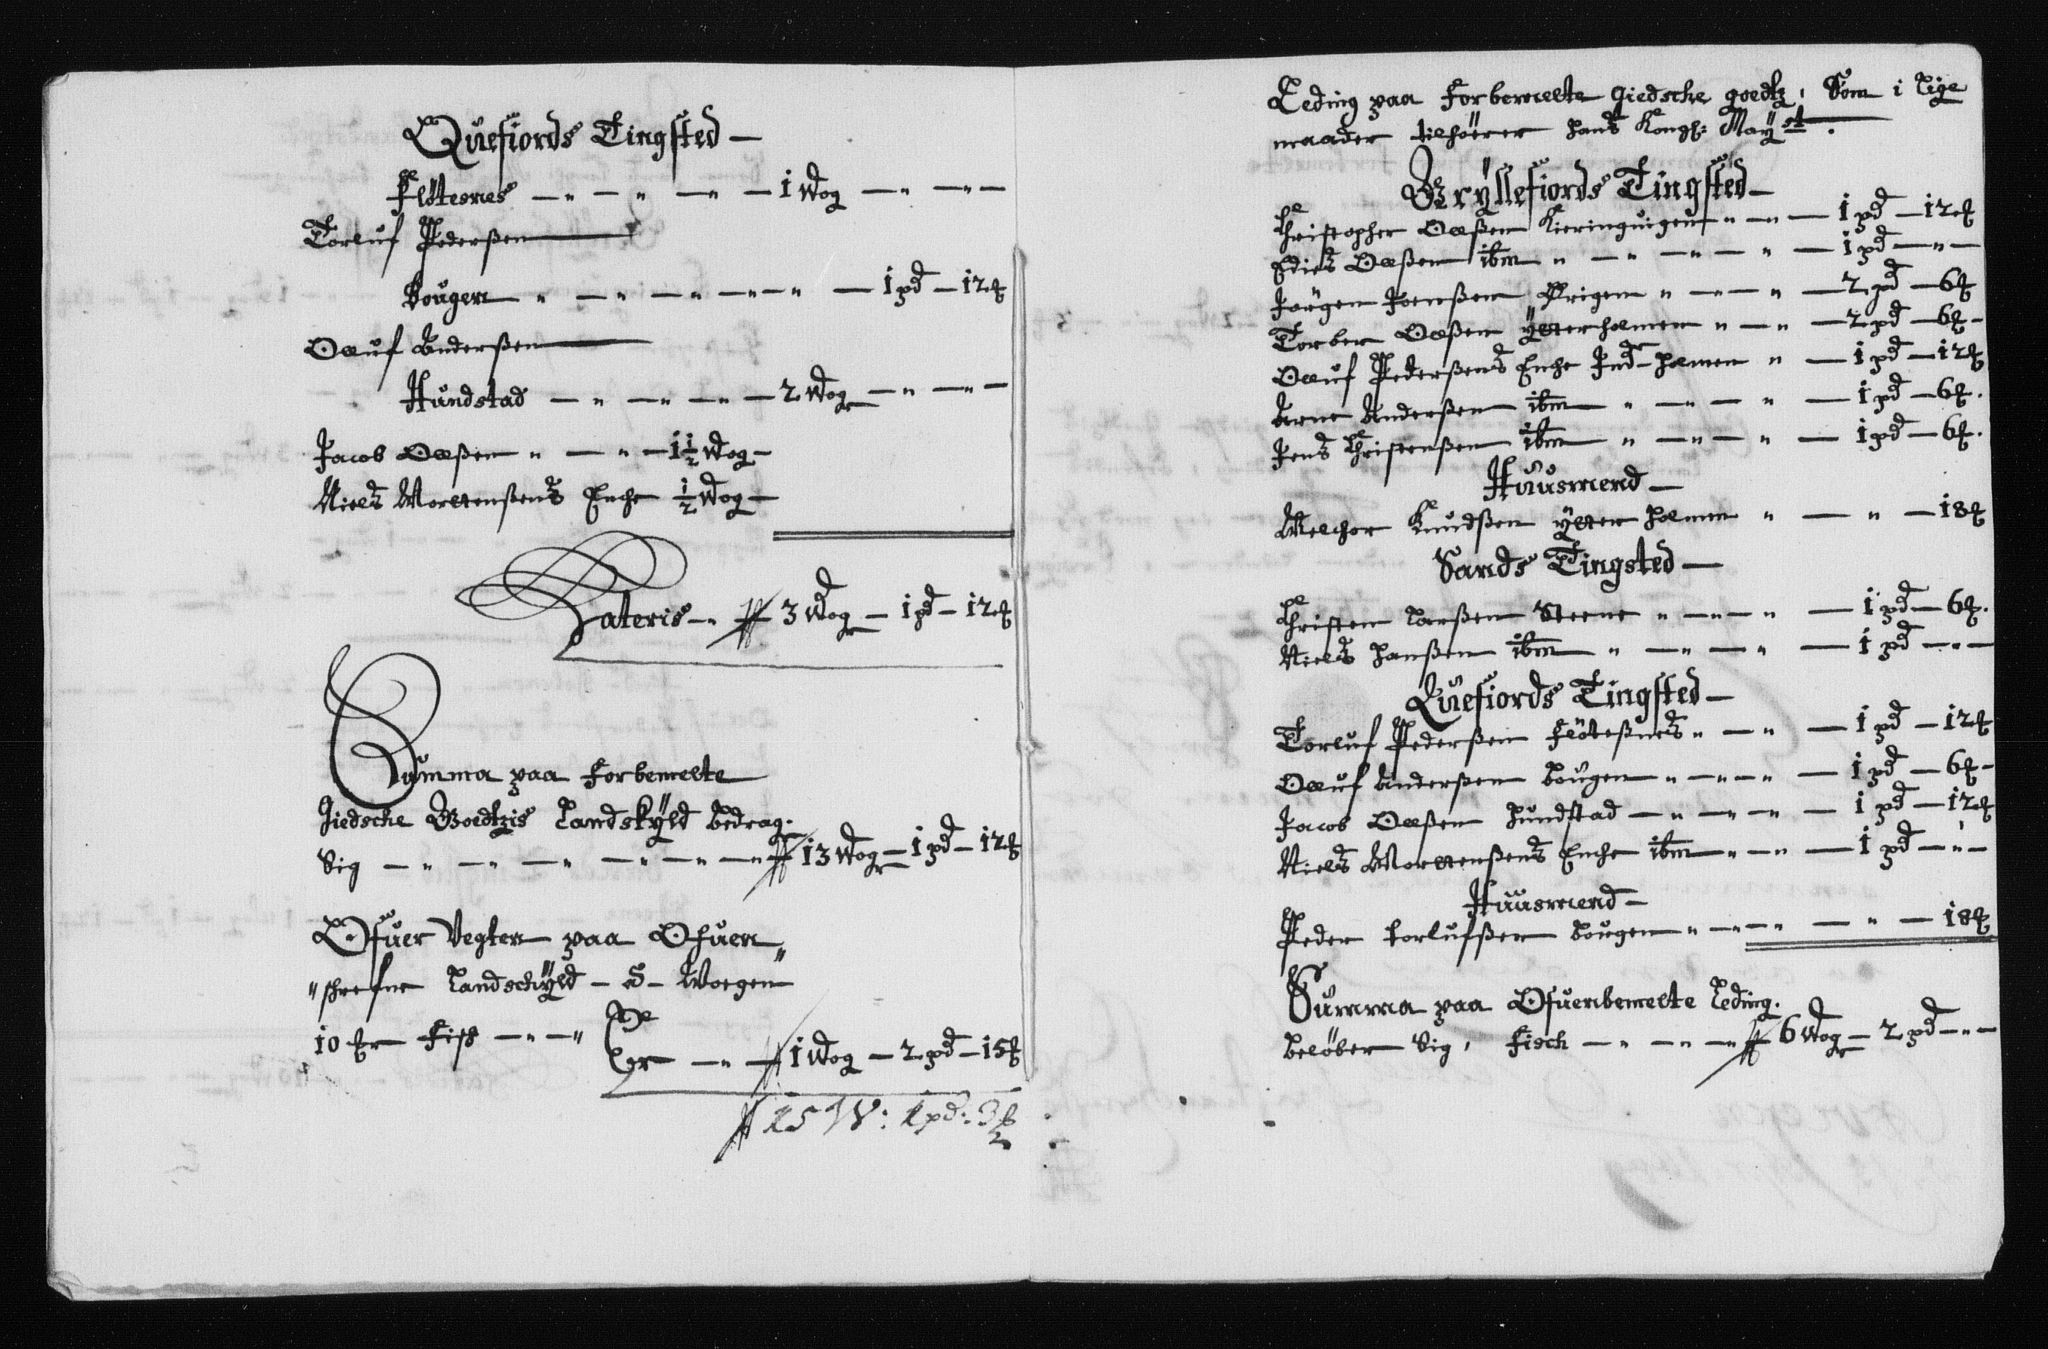 Quefiords Tingsted —
Flötesnes — " — " — " — 1 Wog — " — " —
Torluf Pederßen
Bougen " — " — " — " — " — 1 pd — 12 ₰
Oluf Anderßen
Hundstad — " — " — " — 2 Wog — " — " —
Jacob Olßen " — " — 1½ Wog —
Niels Mortenßens Enche ½ Wog —
Lateris — " — 3 Wog — 1 pd — 12 ₰
Summa paa forbemelte
Giedsche Goedtzis Landskÿld bedrag.
Sig — " — " — " — " — " — 13 Wog — 1 pd — 12 ₰
Ofuer Vegten paa Ofuen"
"schrefne Landschÿld — à — Woegen
10 ₰r Fisk — " — " Er — " — 1 Wog — 2 pd — 15 ₰
15 W: 1 pd: 3 ₰
Leding paa forbemelte Giedsche goedtz, Som i lige
maader tilhörer hans Kongl: Maÿst.
Grÿllefiords Tingsted —
Christopher Olßen Kieringuigen " — " — 1 pd — 12 ₰
Olßen ibm " — " — " — " — 1 pd — " —
Jörgen Joenßen " — " — " — 2 pd — 6 ₰
Torber Olßen Ÿtterholmen " — " — 2 pd — 6 ₰ —
Oluf Pederßens Enche Indr holmen " — 1 pd — 12 ₰
Arne Anderßen ibm " — " — " — 1 pd — 6 ₰.
Jens Christenßen ibm " — " — " — 1 pd — 6 ₰.
Huusmend —
Melchor Knudßen ÿtter holmen " — " — 18 ₰
Sands Tingsted —
Christen Larßen Steene " — " — " — 1 pd — 6 ₰.
Niels Hanßen ibm " — " — " — 1 pd — " —
Quefiords Tingsted —
Torluf Pederßen Flöteßnes " — " — 1 pd — 12 ₰
Oluf Anderßen Bougen " — " — " — 1 pd — 6 ₰ —
Jacob Olßen Hundstad — " — " — " — 1 pd — 12 ₰
Niels Mortenßens Enche ibm — " — " — 1 pd — " —
Huusmend —
Peder Torlufßen Bougen " — " — " — " — 18 ₰
Summa paa Ofuenbemelte Leding.
belöber Sig, Fisch — " — " — 6 Wog — 2 pd — " —